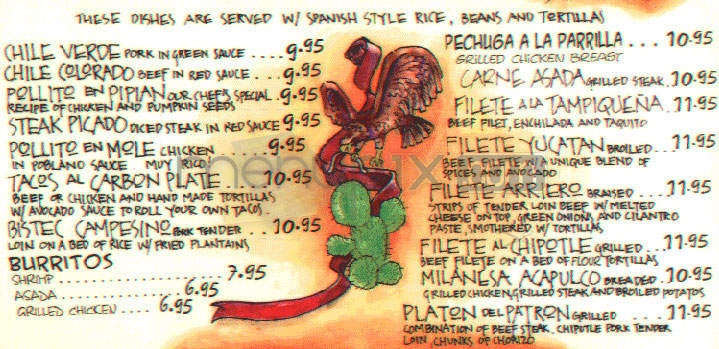 THESE DISHES ARE SERVED W/ SPANISH STYLE RICE, BEANS AND TORTILLAS
CHILE VERDE PORK IN GREEN SAUCE .... 9.95
CHILE COLORADO BEEF IN RED SAUCE ... 9.95
POLLITO EN PIPIAN OUR CHEF'S SPECIAL . 9.95
RECIPE OF CHICKEN AND PUMPKIN SEEDS
STEAK PICADO DICED STEAK IN RED SAUCE 9.95
POLLITO EN MOLE CHICKEN ...... 9.95
IN POBLANO SAUCE MUY RICO!
TACOS AL CARBON PLATE .... 10.95
BEEF OR CHICKEN AND HAND MADE TORTILLAS
W/ AVOCADO SAUCE TO ROLL YOUR OWN TACOS.
BISTEC CAMPESINO PORK TENDER .. 10.95
LOIN ON A BED OF RICE W/ FRIED PLANTAINS
BURRITOS
SHRIMP ..................... 7.95
ASADA ................ 6.95
GRILLED CHICKEN .... 6.95
PECHUGA A LA PARRILLA ... 10.95
GRILLED CHICKEN BREAST
CARNE ASADA GRILLED STEAK . 10.95
FILETE A LA TAMPIQUEÑA . 11.95
BEEF FILET, ENCHILADA AND TAQUITO
FILETE YUCATAN BROILED .. 11.95
BEEF FILETE IN A UNIQUE BLEND OF
SPICES AND AVOCADO
FILETE ARRIERO BRAISED ... 11.95
STRIPS OF TENDER LOIN BEEF W/ MELTED
CHEESE ON TOP, GREEN ONIONS, AND CILANTRO
PASTE, SMOTHERED W/ TORTILLAS
FILETE AL CHIPOTLE GRILLED .. 11.95
BEEF FILETE ON A BED OF FLOUR TORTILLAS
MILANESA ACAPULCO BREADED . 10.95
GRILLED CHICKEN, GRILLED STEAK AND BROILED POTATOS
PLATON DEL PATRON GRILLED .... 11.95
COMBINATION OF BEEF STEAK, CHIPOTLE PORK TENDER
LOIN, CHUNKS OF CHORIZO